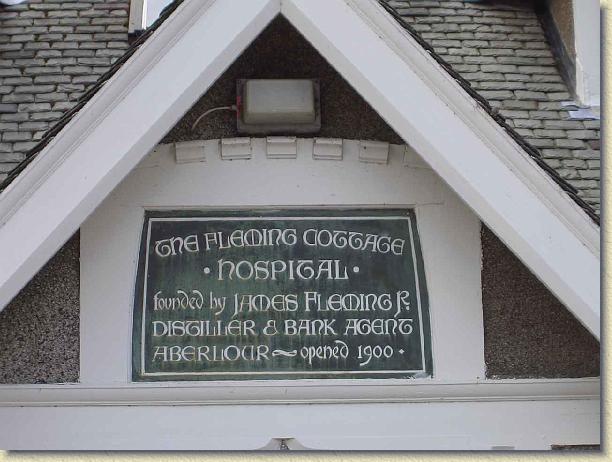 THE FLEMING COTTAGE
• HOSPITAL •
founded by JAMES FLEMING Jr.
DISTILLER & BANK AGENT
ABERLOUR ~ opened 1900 •